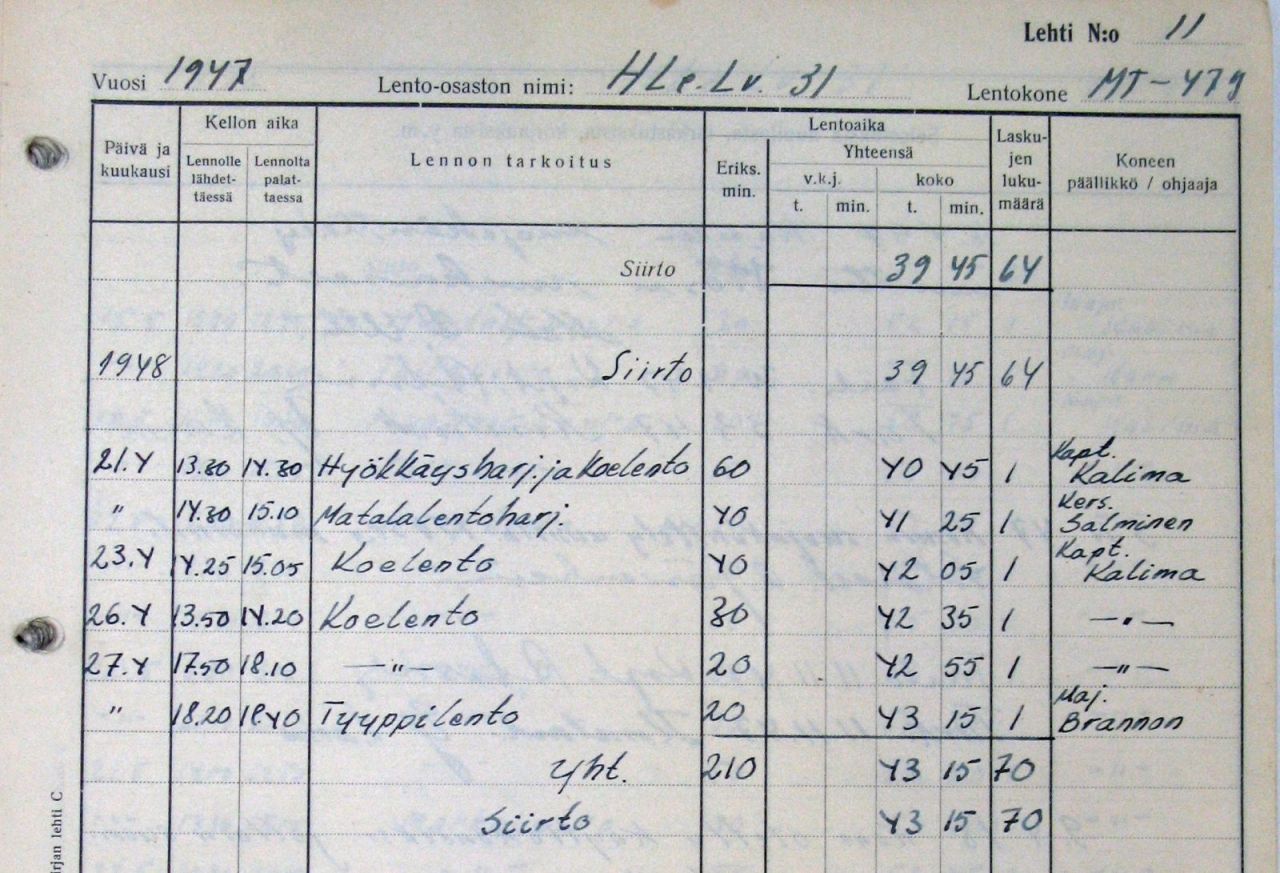 Lehti N:o 11
Vuosi 1947 Lento-osaston nimi: HLe.Lv. 31 Lentokone MT-479
Päivä ja kuukausi Kellon aika Lennolle lähdettäessä Lennolta palattaessa Lennon tarkoitus Lentoaika Eriks. min. Yhteensä v.k.j. t. min. koko t. min. Laskujen lukumäärä Koneen päällikkö / ohjaaja
Siirto 39 45 64
1948 Siirto 39 45 64
21.4 13.30 14.30 Hyökkäysharj. ja Koelento 60 40 45 1 Kapt. Kalima
" 14.30 15.10 Matalalentoharj. 40 41 25 1 Kers. Salminen
23.4 14.25 15.05 Koelento 40 42 05 1 Kapt. Kalima
26.4 13.50 14.20 Koelento 30 42 35 1 —"—
27.4 17.50 18.10 —"— 20 42 55 1 —"—
" 18.20 18.40 Tyyppilento 20 43 15 1 Maj. Brannon
Yht. 210 43 15 70
Siirto 43 15 70
irjan lehti C